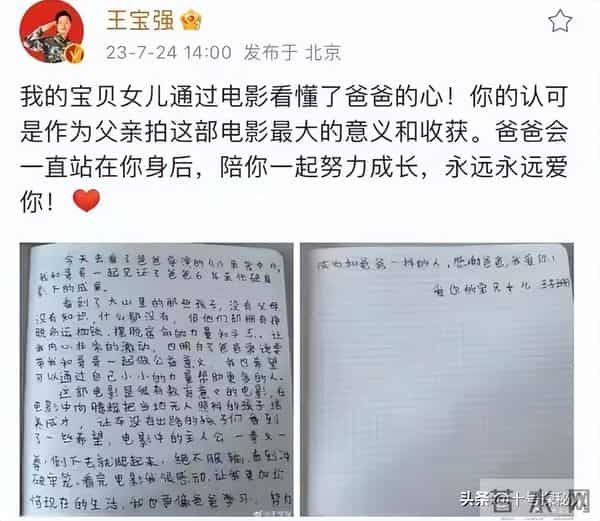 王宝强
23-7-24 14:00 发布于 北京
我的宝贝女儿通过电影看懂了爸爸的心！你的认可
是作为父亲拍这部电影最大的意义和收获。爸爸会
一直站在你身后，陪你一起努力成长，永远永远爱
你！
今天去看了爸爸导演的《八角笼中》,
我和哥哥一起见证了爸爸6年来他破自
己的成章。
看到了大山里的那些孩子，没有父母
没有知识，什么都没有，但他们却拥有挣
脱命运枷锁、摆脱宿命的力量和矛与，让
我内心非常的激动，也明白了爸爸常说要
带我和哥哥一起做公益意义，我也希望
可以通过自己小小的力量帮助更多的人。
这部电影是很有教育意义的电影，在
电影中向腾辉把当地无人照料的孩子培
养成才，让本没有出路的孩子们看到
了一些希望，电影中的主人公一拳又一
拳，倒下去就爬起来，绝不服输，直到冲
破牢笼。看完电影我很感动，让我更加珍
惜现在的生活，我也要像爸爸学习，努力
成为和爸爸一样的人，感谢爸爸，我爱你！
爱你的宝贝女儿 王子珊
头条 @十号探秘人
若水网